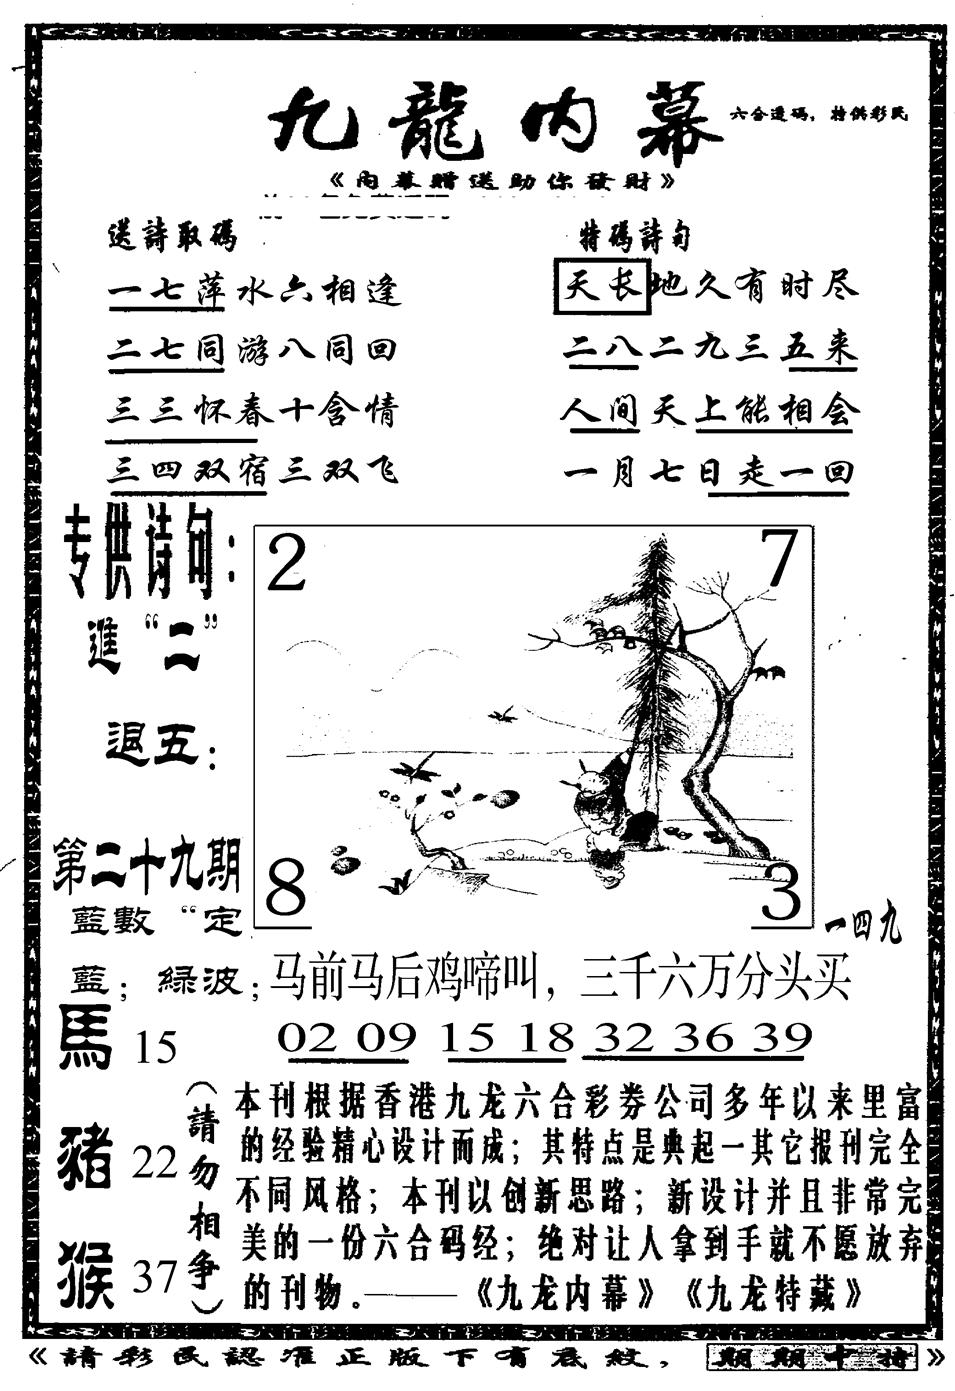 九龍内幕
六合透码，特供彩民
《內幕贈送助你發財》
送詩取碼
一七萍水六相逢
二七同游八同回
三三怀春十含情
三四双宿三双飞
特碼詩句
天长地久有时尽
二八二九三五来
人间天上能相会
一月七日走一回
专供诗句：
進“二”
退五：
第二十九期
藍數“定
藍；綠波；
2
7
8
3
一四九
马前马后鸡啼叫，三千六万分头买
02 09 15 18 32 36 39
馬 15
豬 22
猴 37
（請勿相争）
本刊根据香港九龙六合彩券公司多年以来里富
的经验精心设计而成；其特点是典起一其它报刊完全
不同风格；本刊以创新思路；新设计并且非常完
美的一份六合码经；绝对让人拿到手就不愿放弃
的刊物。——《九龙内幕》《九龙特藏》
《請彩民認准正版下有底紋，期期中特》